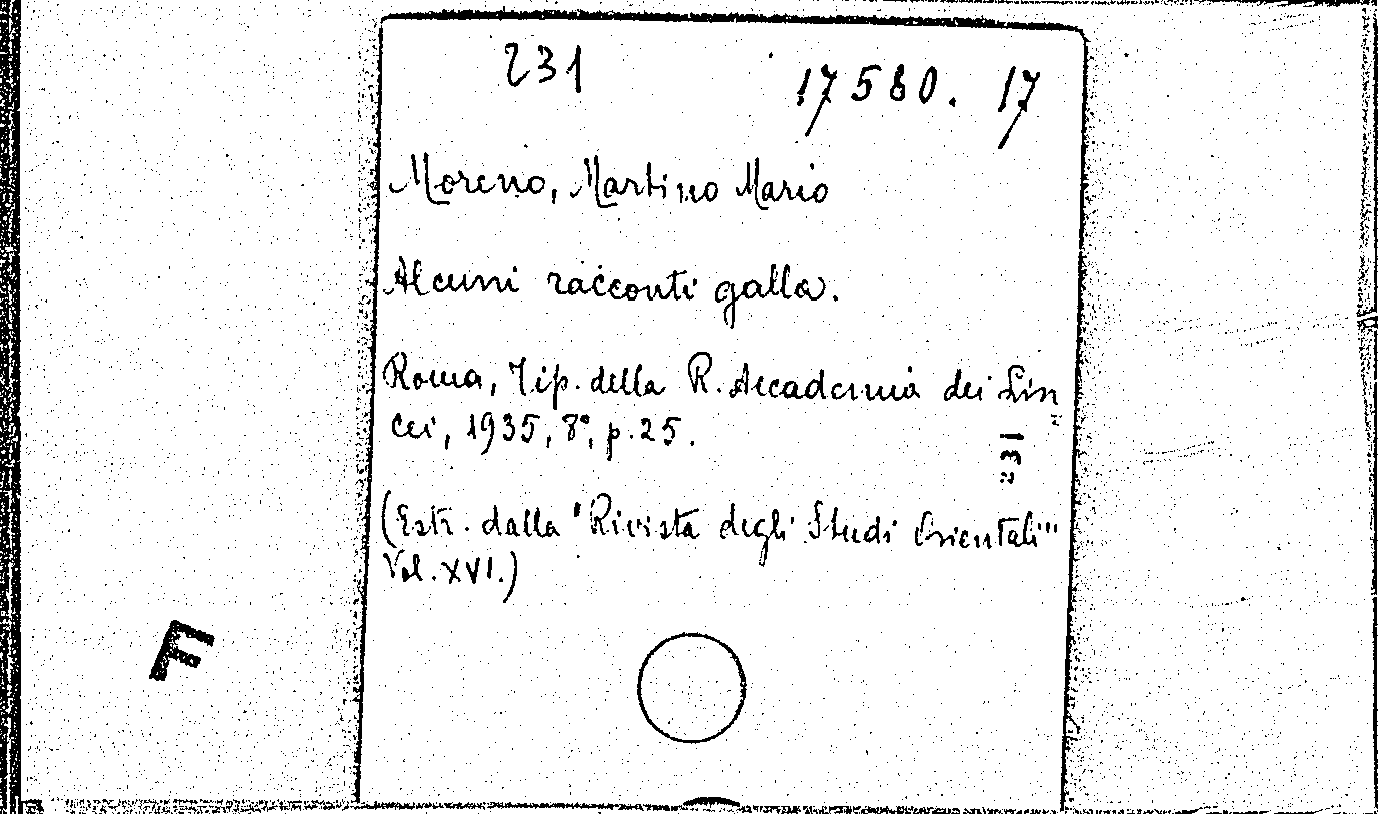 231
17580. 17
Moreno, Martino Mario
Alcuni racconti galla.
Roma, Tip. della R. Accademia dei Lin
cei, 1935, 8°, p. 25.
231
(Estr. dalla "Rivista degli Studi Orientali"
Vol. XVI.)
F